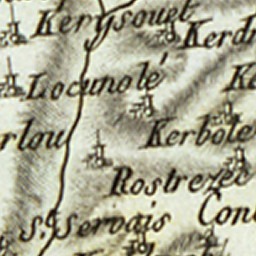 Kerysouet
Kerd
Locunolé
Ke
rlou
Kerbole
Rostrezec
St. Servais
Con